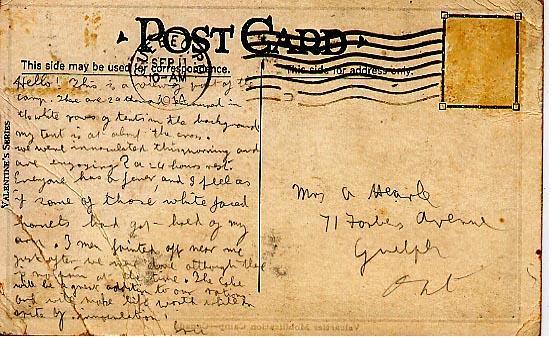 POST CARD
This side may be used for correspondence.
This side for address only.
SEP 11
10-AM
1914
VALENTINE'S SERIES
Hello! This is a view of part of the
camp. There are in
white rows of tents in the background
my tent is at about the cross.
we were innoculated this morning and
are enjoying? a 24 hours rest.
Everyone has a fever, and I feel as
if some of those white faced
hornets had got hold of my
arm. 3 men fainted off near me
just after we were done although there
is no pain at the time. The cake
will be a great addition to our rations
and will make life worth while in
spite of innoculation!
Mrs A Hearle
71 Forbes Avenue
Guelph
Ont
Valcartier Mobilization Camp